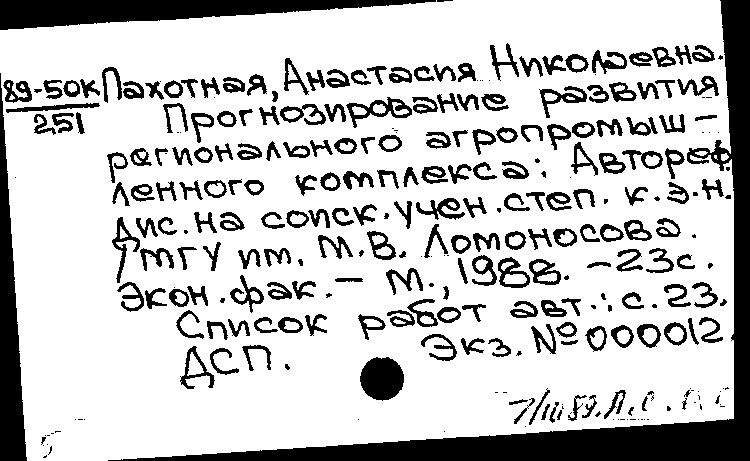 89-50к Пахотная, Анастасия Николаевна.
251 Прогнозирование развития
регионального агропромыш-
ленного комплекса: Автореф.
дис. на соиск. учен. степ. к.э.н.
/ МГУ им. М.В. Ломоносова.
Экон. фак. - М., 1988. - 23с.
Список работ авт.: с. 23.
ДСП. Экз. № 000012.
7/III 89. Л.С.
5